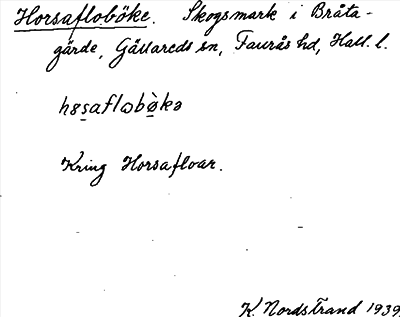 Horsaflobôke. Skogsmark i Bråta-
gärde, Gällareds sn, Faurås hd, Hall. l.
Kring Horsafloar.
K. Nordstrand 1939.